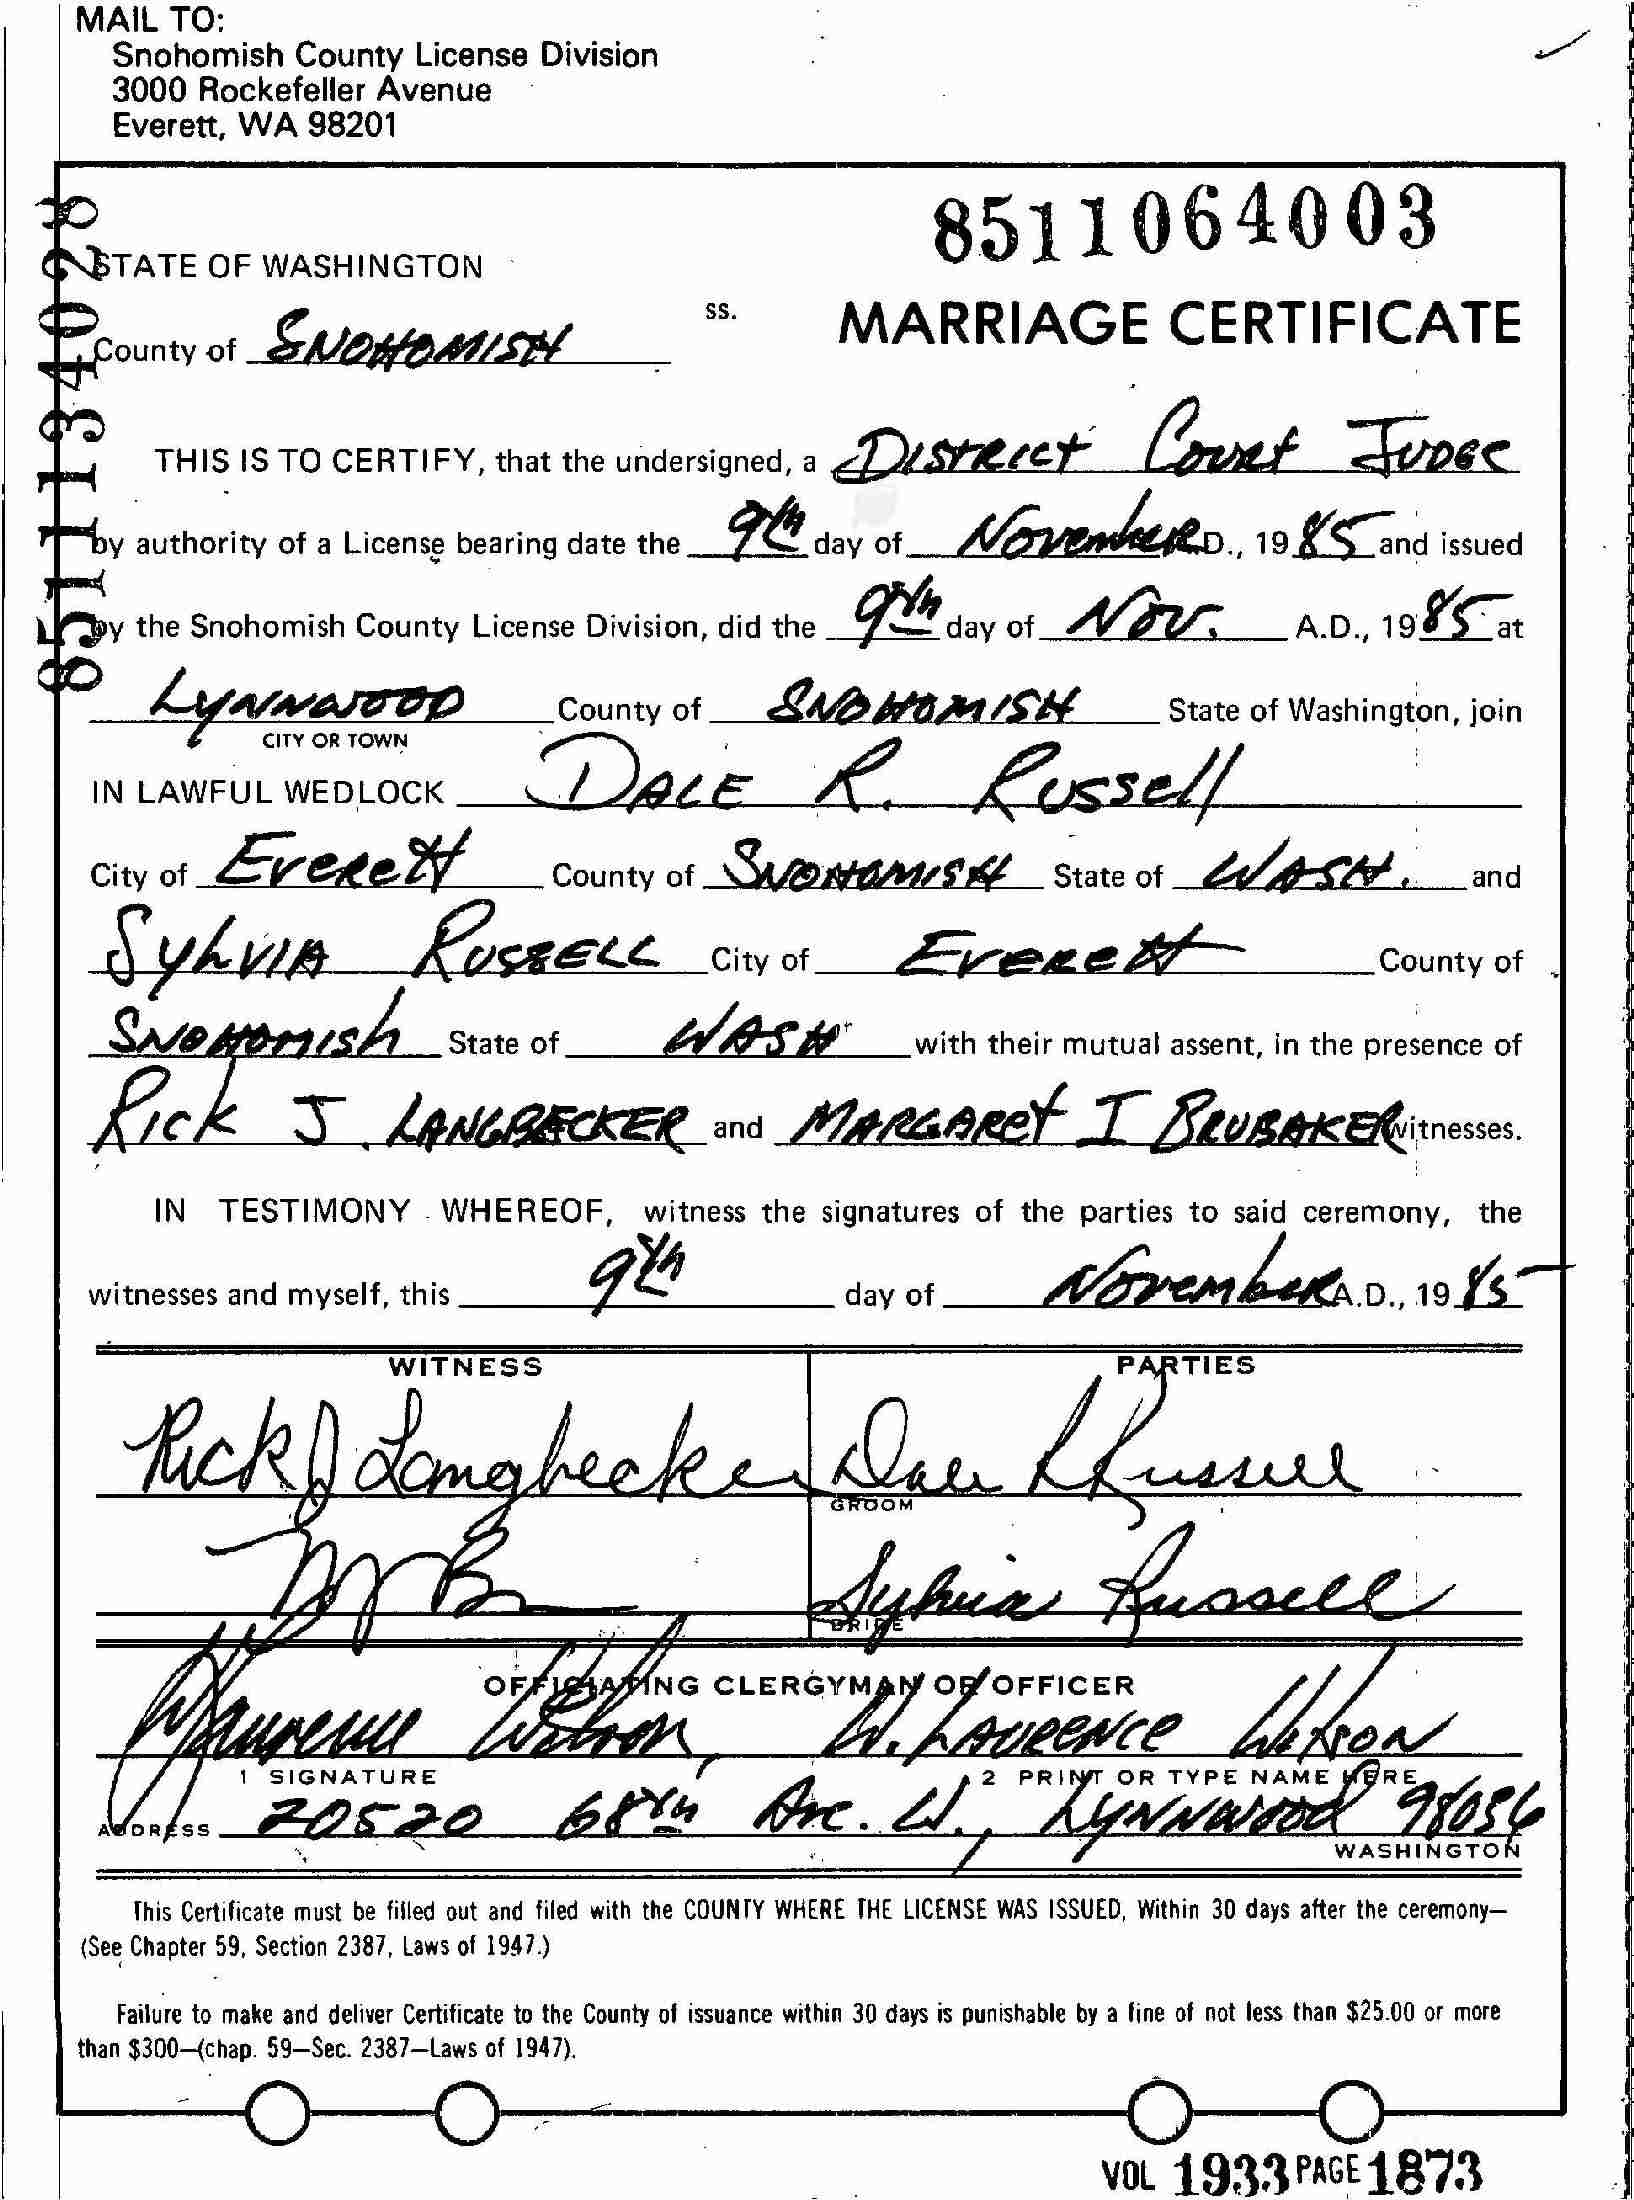 MAIL TO:
Snohomish County License Division
3000 Rockefeller Avenue
Everett, WA 98201
8511064003
8511134028
STATE OF WASHINGTON
ss.
MARRIAGE CERTIFICATE
County of SNOHOMISH
THIS IS TO CERTIFY, that the undersigned, a DISTRICT COURT JUDGE
by authority of a License bearing date the 9th day of November D., 1985 and issued
by the Snohomish County License Division, did the 9th day of Nov. A.D., 1985 at
LYNNWOOD County of SNOHOMISH State of Washington, join
CITY OR TOWN
IN LAWFUL WEDLOCK DALE R. Russell
City of Everett County of SNOHOMISH State of WASH. and
SYLVIA RUSSELL City of Everett County of
SNOHOMISh State of WASH with their mutual assent, in the presence of
Rick J. LANGBECKER and MARGARET I BRUBAKER witnesses.
IN TESTIMONY WHEREOF, witness the signatures of the parties to said ceremony, the
witnesses and myself, this 9th day of November A.D., 1985
WITNESS PARTIES
Rick J Langbecker Dale R Russell
GROOM
Sylvia Russell
BRIDE
OFFICIATING CLERGYMAN OR OFFICER
W Laurence Wilson, W. LAURENCE WILSON
1 SIGNATURE 2 PRINT OR TYPE NAME HERE
ADDRESS 20520 68th Ave. W., Lynnwood 98036
WASHINGTON
This Certificate must be filled out and filed with the COUNTY WHERE THE LICENSE WAS ISSUED, Within 30 days after the ceremony—
(See Chapter 59, Section 2387, Laws of 1947.)
Failure to make and deliver Certificate to the County of issuance within 30 days is punishable by a fine of not less than $25.00 or more
than $300—(chap. 59—Sec. 2387—Laws of 1947).
VOL 1933 PAGE 1873